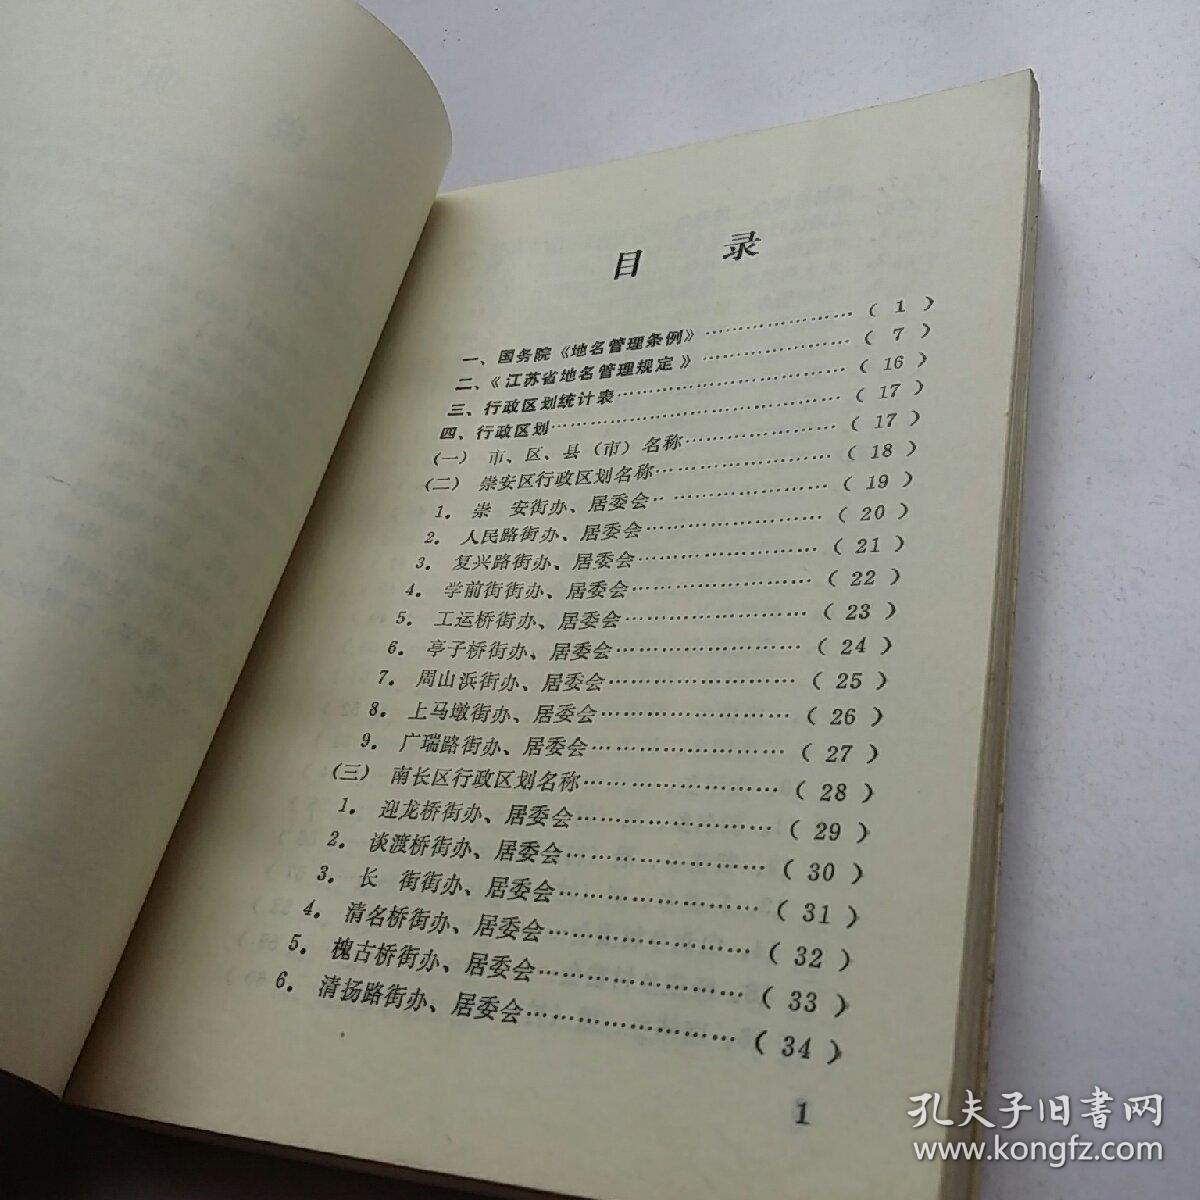 目 录
一、国务院《地名管理条例》……………………( 1 )
二、《江苏省地名管理规定》……………………( 7 )
三、行政区划统计表……………………( 16 )
四、行政区划……………………( 17 )
(一) 市、区、县（市）名称……………………( 17 )
(二) 崇安区行政区划名称……………………( 18 )
1. 崇 安街办、居委会……………………( 19 )
2. 人民路街办、居委会……………………( 20 )
3. 复兴路街办、居委会……………………( 21 )
4. 学前街街办、居委会……………………( 22 )
5. 工运桥街办、居委会……………………( 23 )
6. 亭子桥街办、居委会……………………( 24 )
7. 周山浜街办、居委会……………………( 25 )
8. 上马墩街办、居委会……………………( 26 )
9. 广瑞路街办、居委会……………………( 27 )
(三) 南长区行政区划名称……………………( 28 )
1. 迎龙桥街办、居委会……………………( 29 )
2. 谈渡桥街办、居委会……………………( 30 )
3. 长 街街办、居委会……………………( 31 )
4. 清名桥街办、居委会……………………( 32 )
5. 槐古桥街办、居委会……………………( 33 )
6. 清扬路街办、居委会……………………( 34 )
1
孔夫子旧書网
www.kongfz.com